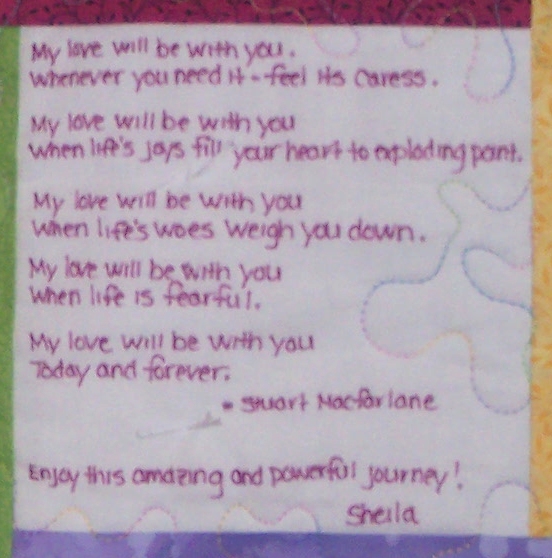 My love will be with you.
Whenever you need it - feel its caress.
My love will be with you
When life's joys fill your heart to exploding point.
My love will be with you
When life's woes weigh you down.
My love will be with you
When life is fearful.
My love will be with you
Today and forever.
- Stuart Macfarlane
Enjoy this amazing and powerful journey!
Sheila